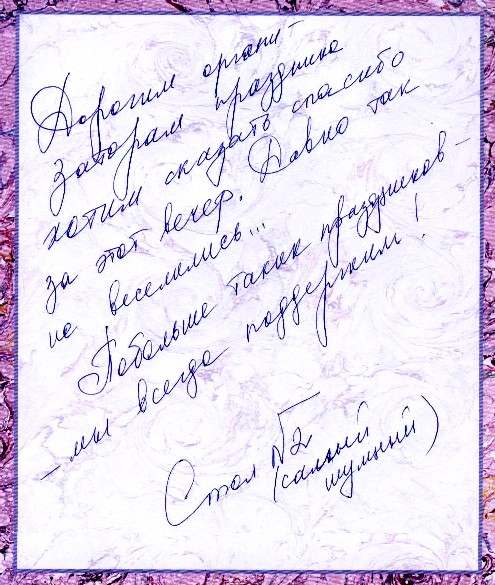 Дорогим органи-
заторам праздника
хотим сказать спасибо
за этот вечер. Давно так
не веселились...
Побольше таких праздников -
- мы всегда поддержим!
Стол №2
(самый
шумный)